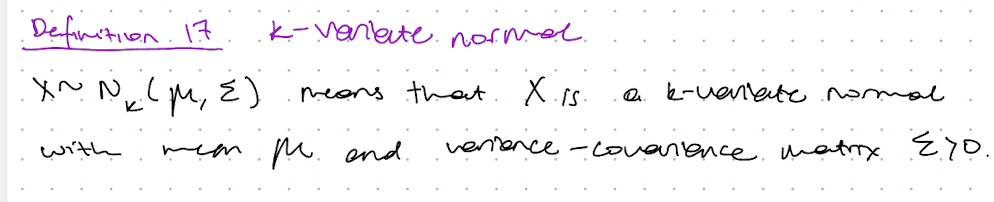 Definition 17. k-variate normal.
X ~ N_k(μ, Σ) means that X is a k-variate normal
with mean μ and variance-covariance matrix Σ>0.